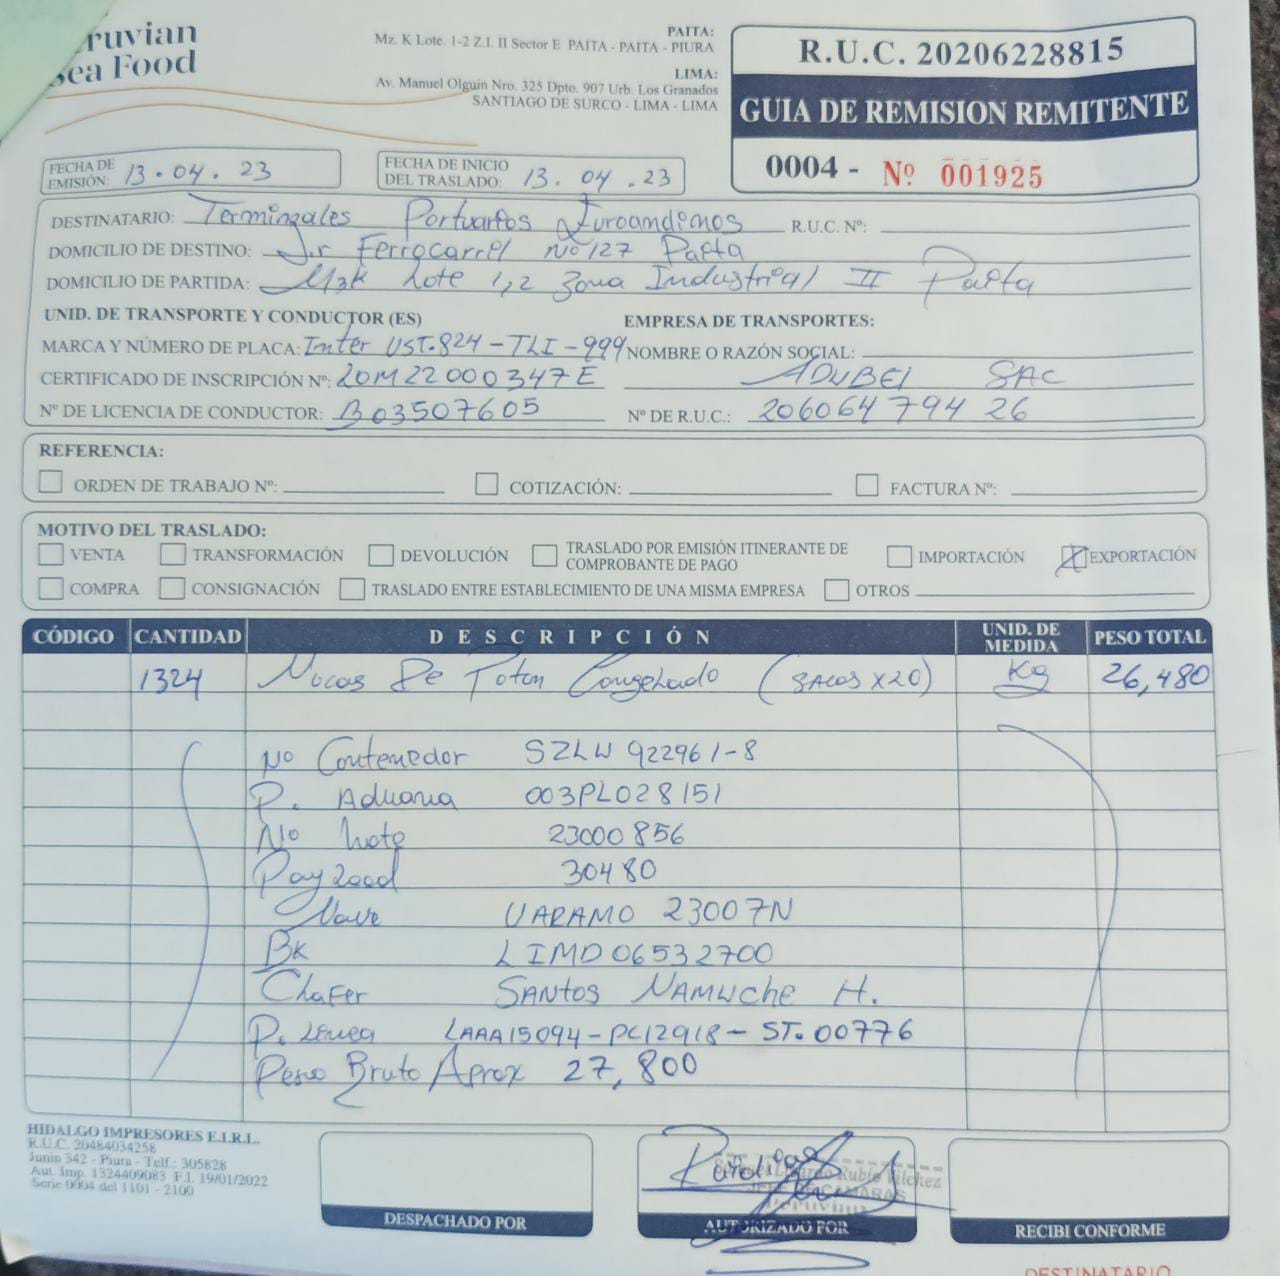 ruvian
Sea Food
PAITA:
Mz. K Lote. 1-2 Z.I. II Sector E PAITA - PAITA - PIURA
LIMA:
Av. Manuel Olguin Nro. 325 Dpto. 907 Urb. Los Granados
SANTIAGO DE SURCO - LIMA - LIMA
R.U.C. 20206228815
GUIA DE REMISION REMITENTE
0004 - Nº 001925
FECHA DE EMISIÓN: 13.04.23
FECHA DE INICIO DEL TRASLADO: 13.04.23
DESTINATARIO: Terminales Portuarios Euroandinos R.U.C. Nº:
DOMICILIO DE DESTINO: Jr Ferrocarril Nº 127 Paita
DOMICILIO DE PARTIDA: Mzk Lote 1,2 Zona Industrial II Paita
UNID. DE TRANSPORTE Y CONDUCTOR (ES) EMPRESA DE TRANSPORTES:
MARCA Y NÚMERO DE PLACA: Inter UST-824-TLI-999 NOMBRE O RAZÓN SOCIAL:
CERTIFICADO DE INSCRIPCIÓN Nº: 20M22000347E ADUBEI SAC
Nº DE LICENCIA DE CONDUCTOR: B03507605 Nº DE R.U.C.: 20606479426
REFERENCIA:
ORDEN DE TRABAJO Nº: COTIZACIÓN: FACTURA Nº:
MOTIVO DEL TRASLADO:
VENTA TRANSFORMACIÓN DEVOLUCIÓN TRASLADO POR EMISIÓN ITINERANTE DE COMPROBANTE DE PAGO IMPORTACIÓN X EXPORTACIÓN
COMPRA CONSIGNACIÓN TRASLADO ENTRE ESTABLECIMIENTO DE UNA MISMA EMPRESA OTROS
CÓDIGO CANTIDAD DESCRIPCIÓN UNID. DE MEDIDA PESO TOTAL
1324 De Poton Congelado (SACOS X20) Kg 26,480
Nº Contenedor SZLW 922961-8
P. Aduana 003PL028151
Nº Lote 23000856
Payload 30480
Nave VARAMO 23007N
BK LIMD06532700
Chofer SANTOS NAMUCHE H.
P. Linea LAAA15094-PC12918-ST.00776
Peso Bruto Aprox 27,800
HIDALGO IMPRESORES E.I.R.L.
R.U.C. 20484034258
Junin 342 - Piura - Telf.: 305828
Aut. Imp. 1324409083 F.I. 19/01/2022
Serie 0004 del 1101 - 2100
Rubio Vilchez
JEFE DE CAMARAS
Peruvian
DESPACHADO POR AUTORIZADO POR RECIBI CONFORME
DESTINATARIO